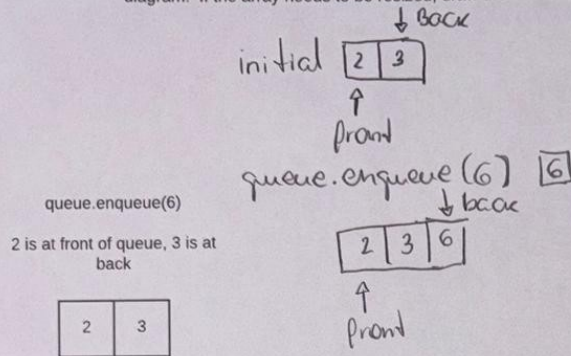 ↓ Back
initial 2 3
↑
front
queue.enqueue(6) 6
queue.enqueue(6)
↓ back
2 is at front of queue, 3 is at
back
2 3 6
↑
front
2 3